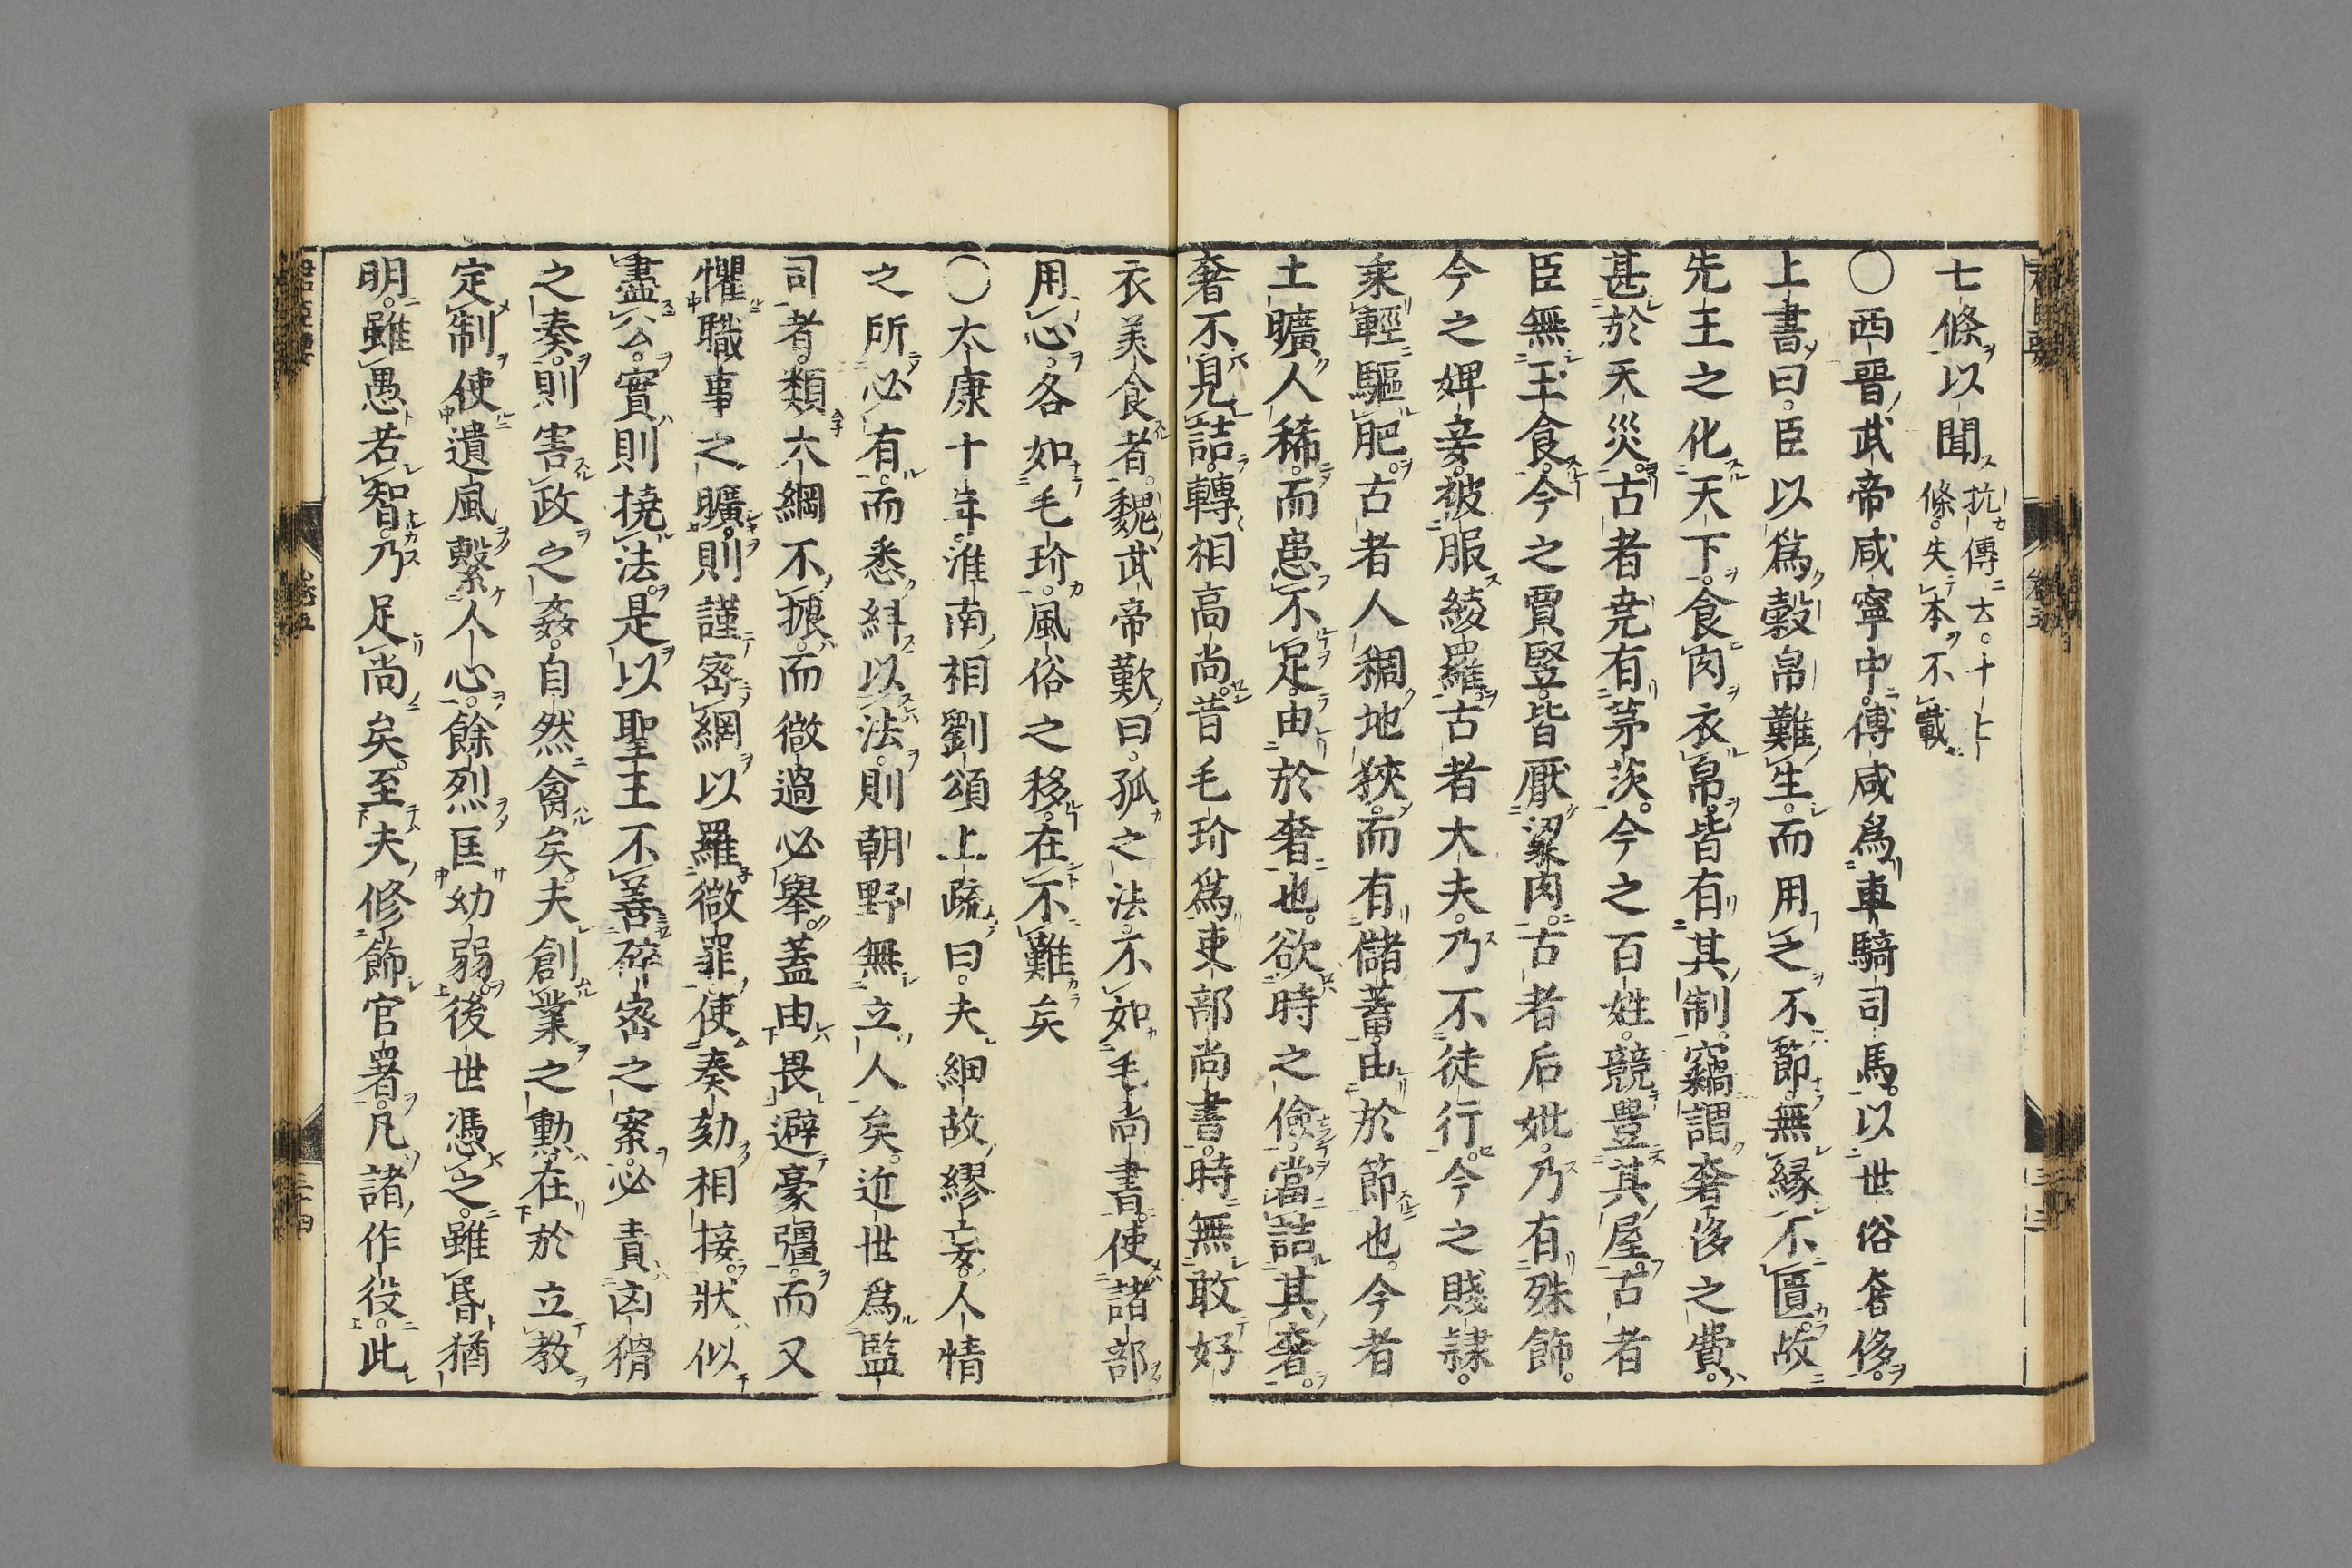 七條以聞抗傳云。十七條。失本不載
〇西晉武帝咸寧中。傅咸爲車騎司馬。以世俗奢侈。
上書曰。臣以爲穀帛難生。而用之不節。無緣不匱。故
先王之化天下。食肉衣帛。皆有其制。竊謂奢侈之費。
甚於天災。古者堯有茅茨。今之百姓。競豊其屋。古者
臣無玉食。今之賈竪。皆厭粱肉。古者后妣。乃有殊飾。
今之婢妾。被服綾羅。古者大夫。乃不徒行。今之賤隷。
乘輕驅肥。古者人稠地狹。而有儲蓄。由於節也。今者
土曠人稀。而患不足。由於奢也。欲時之儉。當詰其奢。
奢不見詰。轉相高尚。昔毛玠爲吏部尚書。時無敢好
衣美食者。魏武帝歎曰。孤之法。不如毛尚書。使諸部
用心。各如毛玠。風俗之移。在不難矣
〇太康十年。淮南相劉頌上疏曰。夫細故繆妄。人情
之所必有。而悉糾以法。則朝野無立人矣。近世爲監
司者。類大綱不振。而微過必舉。蓋由畏避豪彊。而又
懼職事之曠。則謹密網以羅微罪。使奏劾相接。狀似
盡公。實則撓法。是以聖王不善碎密之案。必責凶猾
之奏。則害政之姦。自然禽矣。夫創業之勳。在於立教
定制。使遺風繫人心。餘烈匡幼弱。後世憑之。雖昬猶
明。雖愚若智。乃足尚矣。至夫修飾官署。凡諸作役。此
君臣要
卷五
三十四